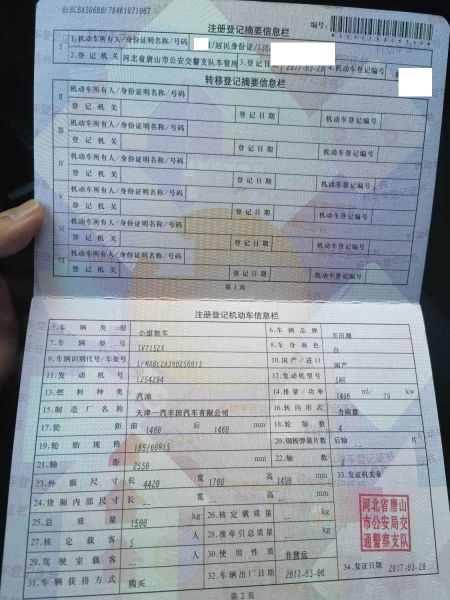 注册登记摘要信息栏
编号:
I 1.机动车所有人/身份证明名称/号码 /居民身份证/
2.登记机关 河北省唐山市公安交警支队车管所 3.登记日期 2017-03-28 4.机动车登记编号
转移登记摘要信息栏
II 机动车所有人/身份证明名称/号码
登记机关 登记日期 机动车登记编号
III 机动车所有人/身份证明名称/号码
登记机关 登记日期 机动车登记编号
IV 机动车所有人/身份证明名称/号码
登记机关 登记日期 机动车登记编号
V 机动车所有人/身份证明名称/号码
登记机关 登记日期 机动车登记编号
VI 机动车所有人/身份证明名称/号码
登记机关 登记日期 机动车登记编号
VII 机动车所有人/身份证明名称/号码
登记机关 登记日期 机动车登记编号
第1页
注册登记机动车信息栏
5.车辆类型 小型轿车 6.车辆品牌 丰田牌
7.车辆型号 8.车身颜色 白
9.车辆识别代号/车架号 10.国产/进口 国产
11.发动机号 12.发动机型号 5NR
13.燃料种类 汽油 14.排量/功率 1496 ml/ 79 kw
15.制造厂名称 天津一汽丰田汽车有限公司 16.转向形式 方向盘
17.轮距 前 1460 后 1460 mm 18.轮胎数 4
19.轮胎规格 185/60R15 20.钢板弹簧片数 后轴 -- 片
21.轴距 2550 mm 22.轴数 2
23.外廓尺寸 长 4420 宽 1700 高 1490 mm 33.发证机关章
24.货厢内部尺寸 长 -- 宽 -- 高 -- mm
25.总质量 1500 kg 26.核定载质量 -- kg
27.核定载客 5 人 28.准牵引总质量 -- kg
29.驾驶室载客 -- 人 30.使用性质 非营运
河北省唐山
市公安局交
通警察支队
31.车辆获得方式 购买 32.车辆出厂日期 2017-03-06 34.发证日期 2017-03-28
第2页